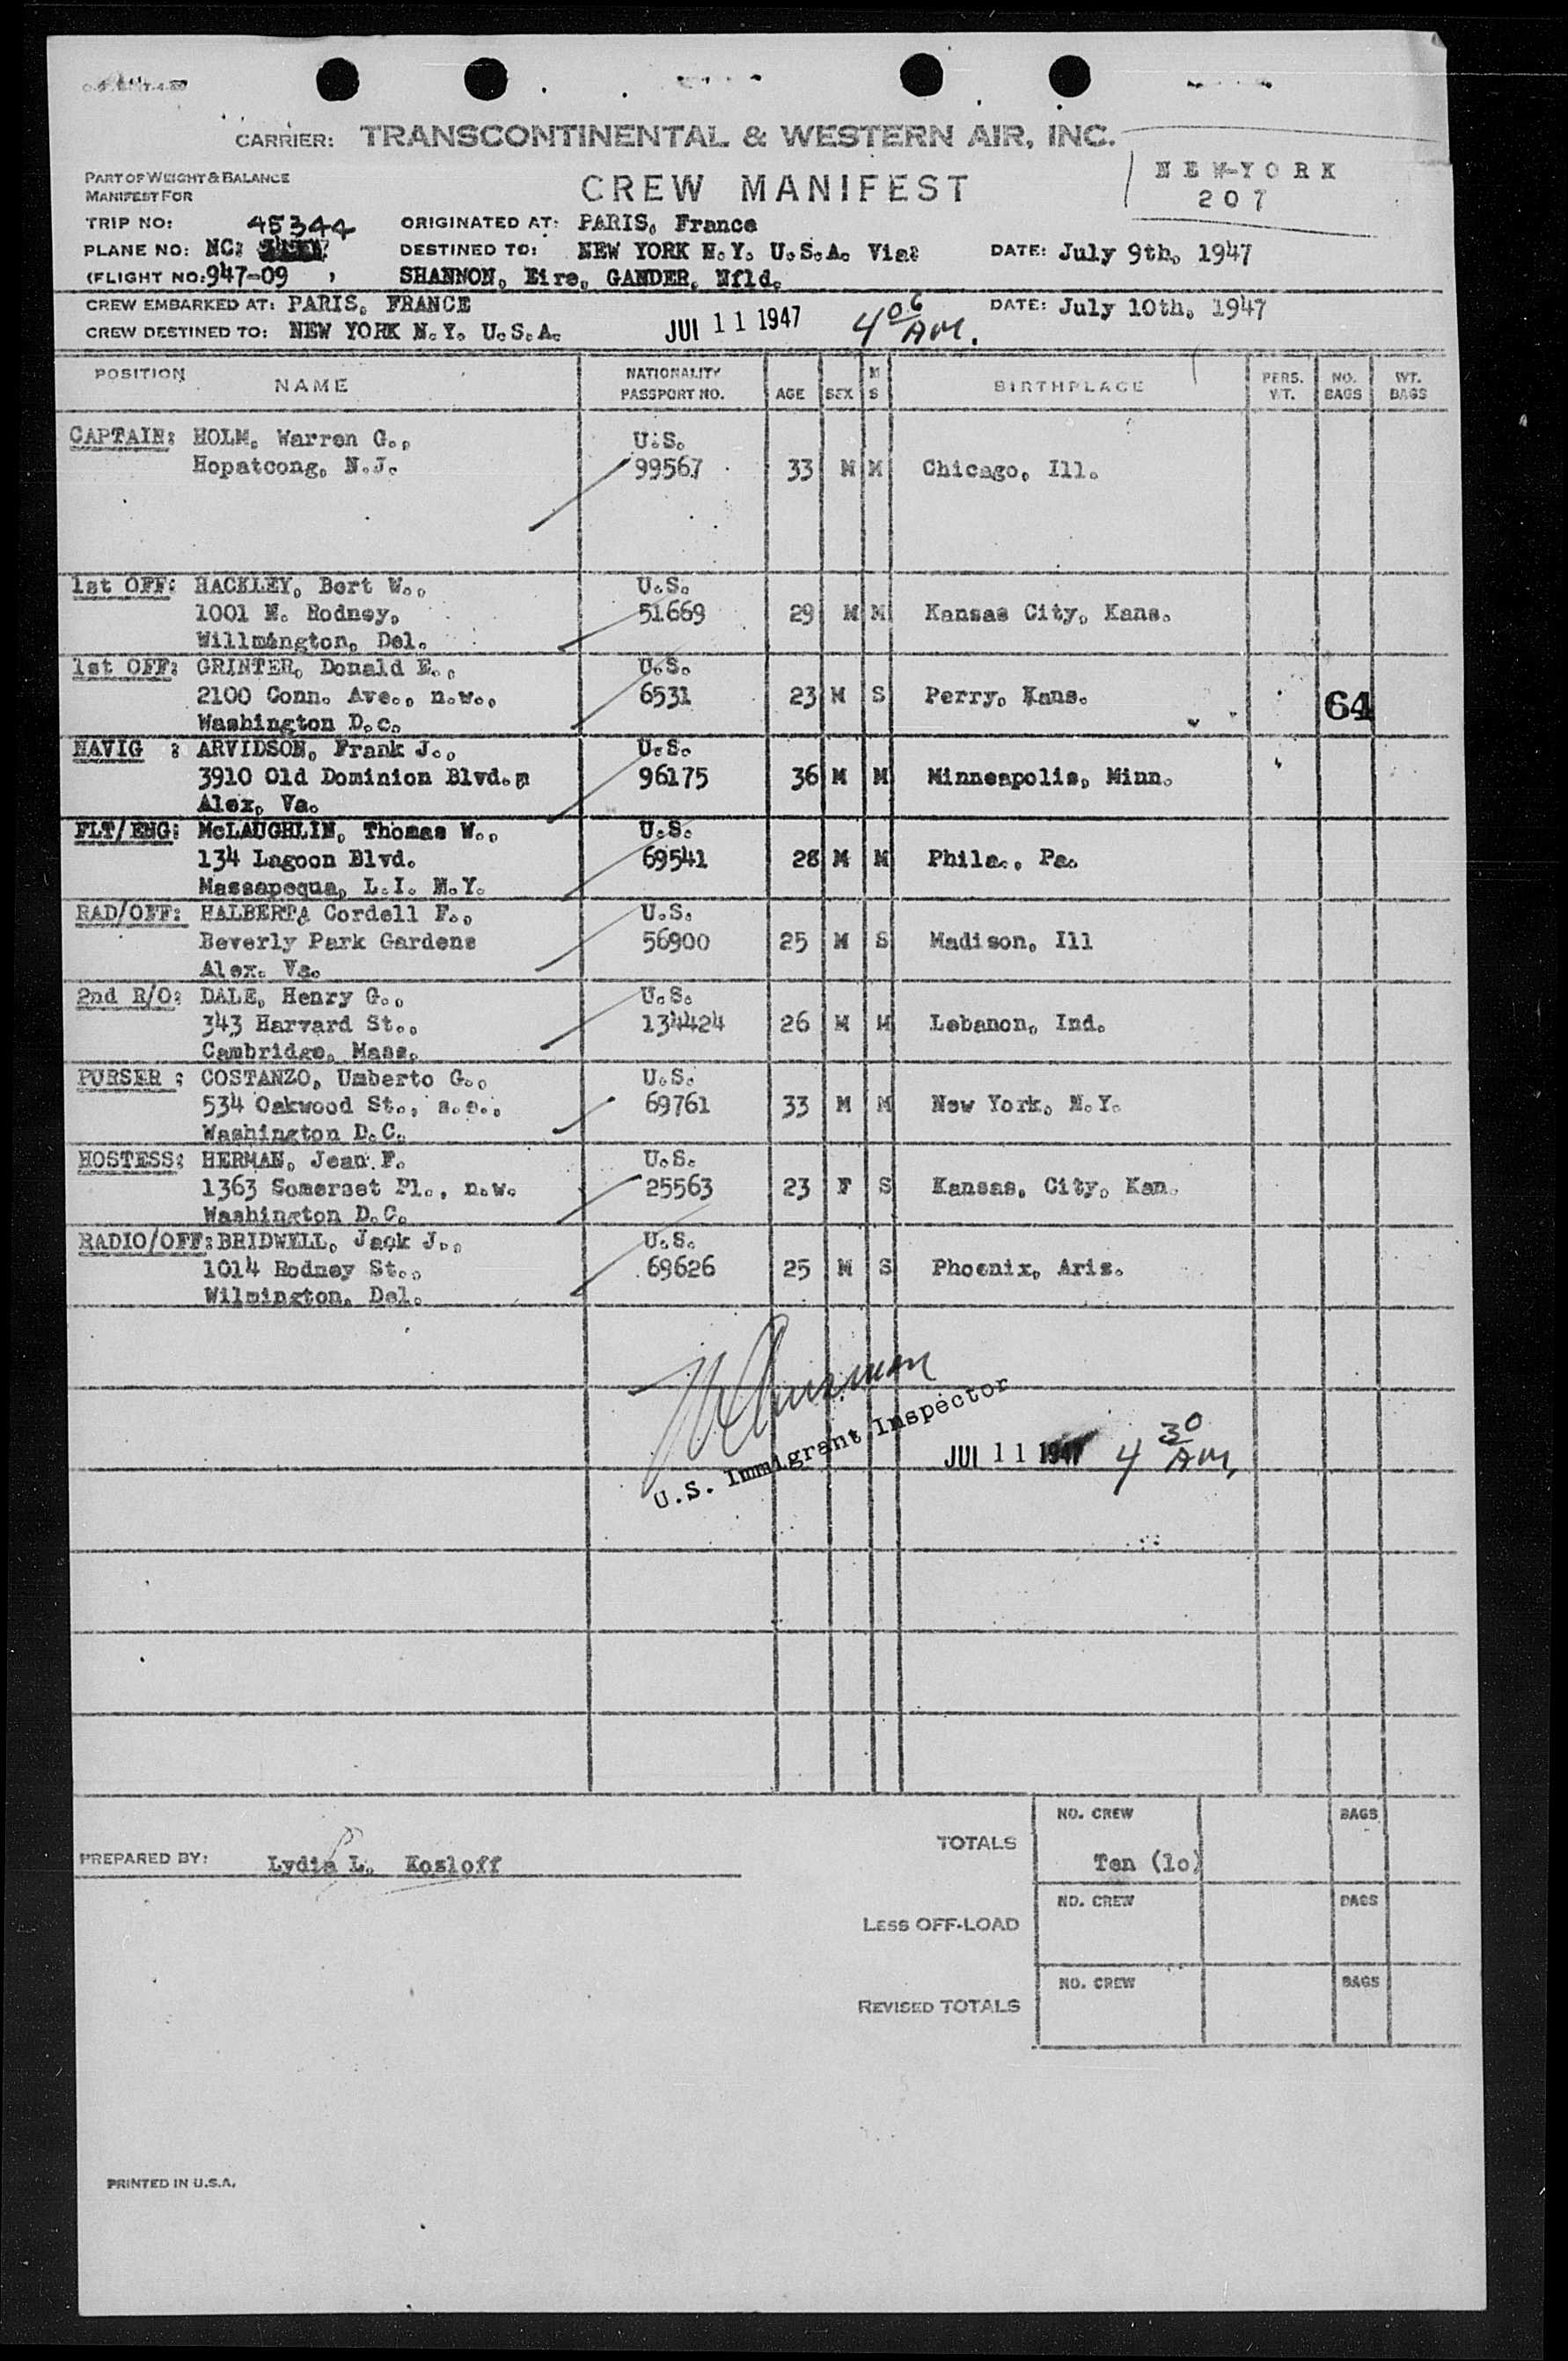 CARRIER: TRANSCONTINENTAL & WESTERN AIR, INC.
PART OF WEIGHT & BALANCE
MANIFEST FOR
CREW MANIFEST
NEW-YORK
207
TRIP NO: 45344 ORIGINATED AT: PARIS, France
PLANE NO: NC: DESTINED TO: NEW YORK N.Y. U.S.A. Via: DATE: July 9th, 1947
(FLIGHT NO: 947-09 ) SHANNON, Eire, GANDER, Nfld.
CREW EMBARKED AT: PARIS, FRANCE DATE: July 10th, 1947
CREW DESTINED TO: NEW YORK N.Y. U.S.A. JUl 11 1947 4 06 AM.
POSITION NAME NATIONALITY PASSPORT NO. AGE SEX M S BIRTHPLACE PERS. WT. NO. BAGS WT. BAGS
CAPTAIN: HOLM, Warren G., U.S.
Hopatcong, N.J. 99567 33 M M Chicago, Ill.
1st OFF: HACKLEY, Bert W., U.S.
1001 N. Rodney, 51669 29 M M Kansas City, Kans.
Willmington, Del.
1st OFF: GRINTER, Donald E., U.S.
2100 Conn. Ave., n.w., 6531 23 M S Perry, Kans. 64
Washington D.c.
NAVIG : ARVIDSON, Frank J., U.S.
3910 Old Dominion Blvd. 96175 36 M M Minneapolis, Minn.
Alex, Va.
FLT/ENG: McLAUGHLIN, Thomas W., U.S.
134 Lagoon Blvd. 69541 28 M M Phila., Pa.
Massapequa, L.I. N.Y.
RAD/OFF: HALBERT, Cordell F., U.S.
Beverly Park Gardens 56900 25 M S Madison, Ill
Alex. Va.
2nd R/O: DALE, Henry G., U.S.
343 Harvard St., 134424 26 M M Lebanon, Ind.
Cambridge, Mass.
PURSER : COSTANZO, Umberto G., U.S.
534 Oakwood St., s.e., 69761 33 M M New York, N.Y.
Washington D.C.
HOSTESS: HERMAN, Jean F. U.S.
1363 Somerset Pl., n.w. 25563 23 F S Kansas, City, Kan.
Washington D.C.
RADIO/OFF: BRIDWELL, Jack J., U.S.
1014 Rodney St., 69626 25 M S Phoenix, Aris.
Wilmington, Del.
U.S. Immigrant Inspector
JUl 11 1947 4 30 AM.
NO. CREW BAGS
TOTALS
PREPARED BY: Lydia L. Kozloff Ten (10)
NO. CREW BAGS
LESS OFF-LOAD
NO. CREW BAGS
REVISED TOTALS
PRINTED IN U.S.A.